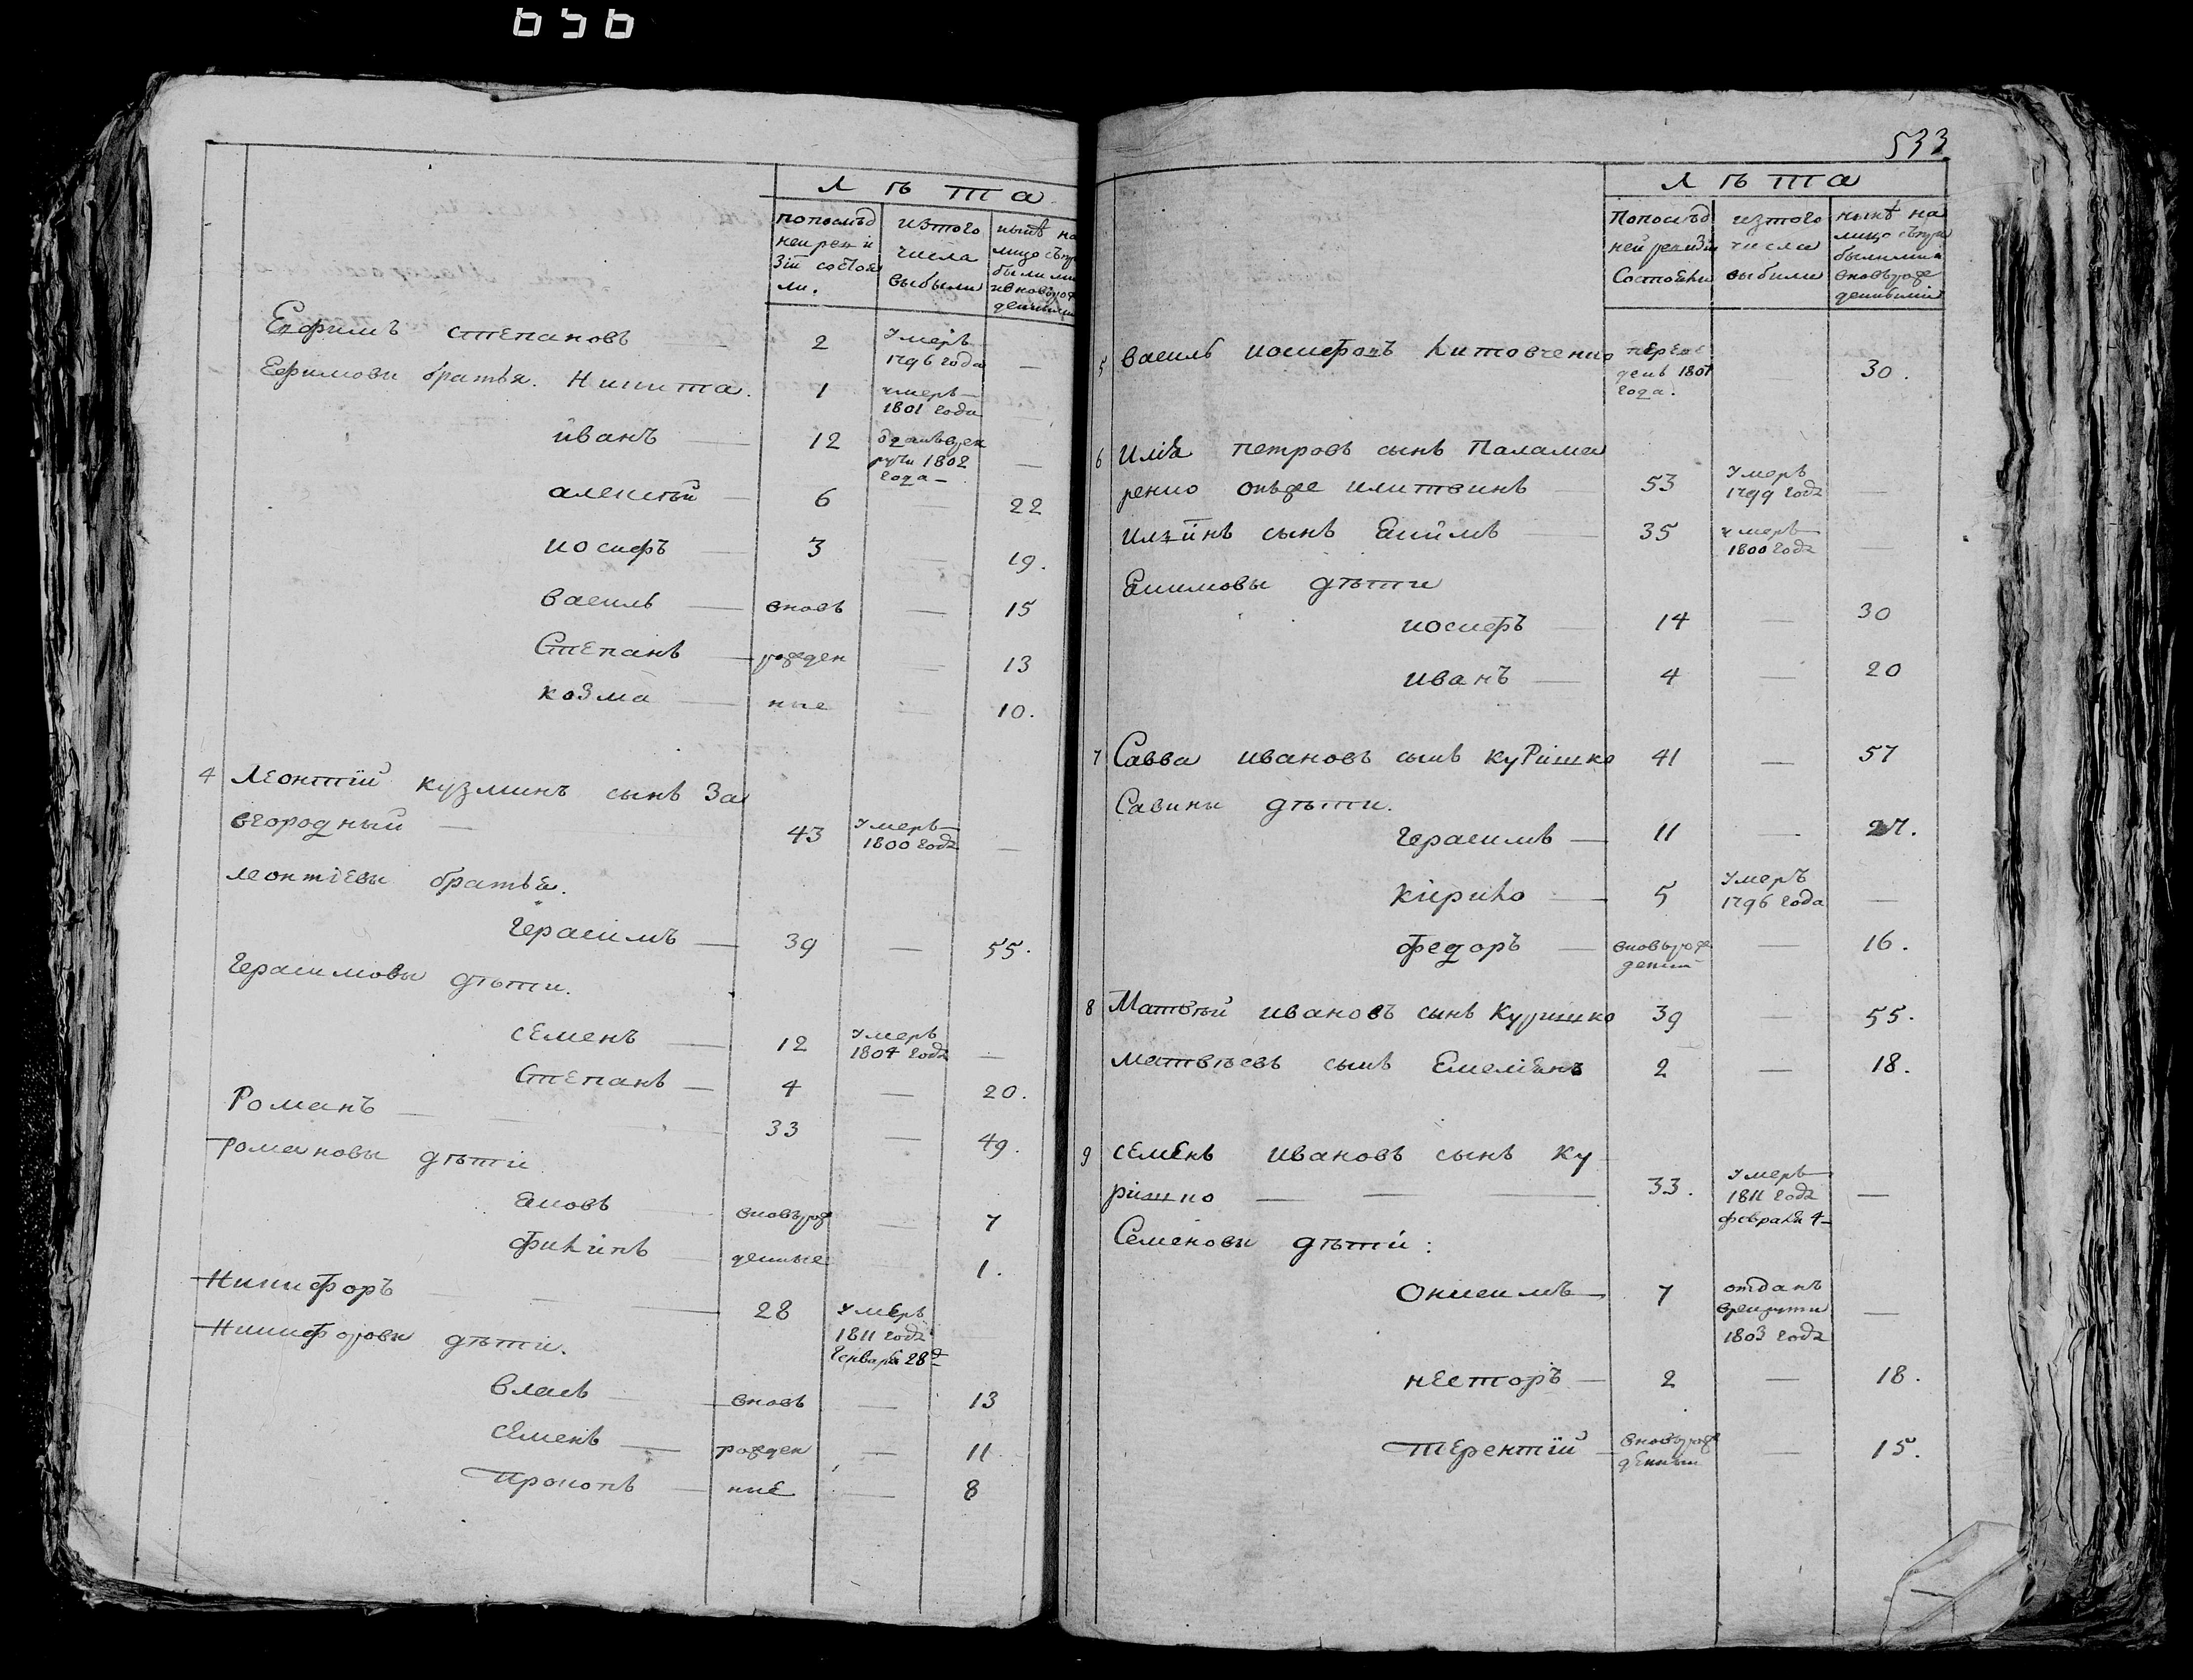 636
Л ѣ т а
попослѣд
ней реви
зіи состоя
ли.
изтого
числа
выбыли
нынѣ на
лицо съпри
былыми
ивновьрож
денными
Ефимъ степановъ — 2 Умеръ 1796 года —
Ефимовы братья. Никита. 1 умеръ 1801 года —
иванъ — 12 1802 года —
алексѣй — 6 — 22
иосифъ — 3 — 19.
василь — вновь — 15
Степанъ — рожден — 13
козма — ные — 10.
4 Леонтіи кузминъ сынъ За
вгородный — 43 Умеръ 1800 года —
леонтіевы братья.
Герасимъ — 39 — 55.
Герасимовы дѣти.
семенъ — 12 Умеръ 1804 года —
Степанъ — 4 — 20.
Романъ — 33 — 49.
романовы дѣти
яковъ — вновьрож — 7
филипъ — денные 1.
Никифоръ — 28 Умеръ 1811 года Генваря 28 д
Никифоровы дѣти.
власъ — вновь — 13
семенъ — рожден — 11
Прокопъ — ные — 8
533
Л ѣ т а
Попослѣд
ней ревизіи
Состояли
изтого
числа
выбыли
нынѣ на
лицо съпри
былыми и
вновьрож
денными
5 василь иосифовъ Литовченко переве
денъ 1801 — 30.
года.
6 Илія петровъ сынъ Палама
ренко онъже илитвинъ — 53 Умеръ 1799 года —
Илїинъ сынъ Якимъ — 35 умеръ 1800 года —
Якимовы дѣти
иосифъ — 14 — 30
иванъ — 4 — 20
7 Савва ивановъ сынъ куришко 41 — 57
Савины дѣти.
Герасимъ — 11 — 27.
кирило — 5 Умеръ 1796 года —
федоръ — вновьрож денный — 16.
8 Матвѣй ивановъ сынъ Куришко 39 — 55.
матвѣевъ сынъ Емелїянъ 2 — 18.
9 семенъ ивановъ сынъ ку
ришко — — — 33. Умеръ 1811 года февраля 4 —
Семеновы дѣти:
Онисимъ — 7 отданъ врекруты 1803 года —
несторъ — 2 — 18.
терентїй — вновьрож денный — 15.